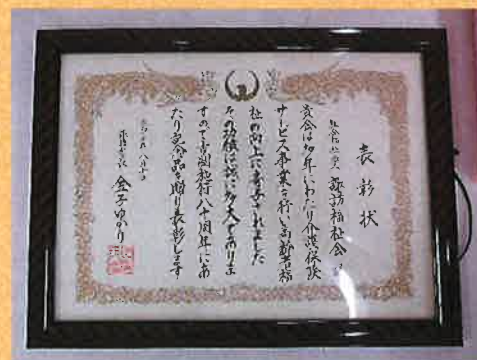 表彰状
社会福祉法人 諏訪福祉会 殿
貴会は多年にわたり介護保険
サービス事業を行い高齢者福
祉の向上に寄与されました
その功績は誠に多大でありま
すので市制施行八十周年にあ
たり記念品を贈り表彰します
八月十日
諏訪市長 金子ゆかり